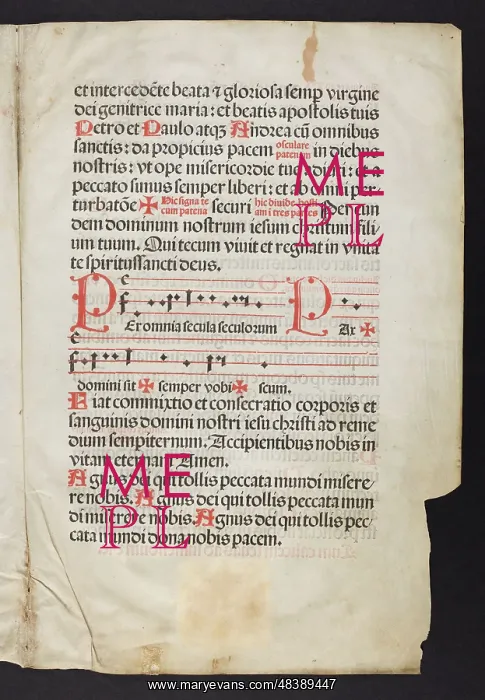 et intercedēte beata ⁊ gloriosa semp virgine
dei genitrice maria: et beatis apostolis tuis
Petro et Paulo atqȝ Andrea cū omnibus
sanctis: da propicius pacem osculare patenam in diebus
nostris: vt ope misericordie tue adiuti: et a
peccato simus semper liberi: et ab omni per
turbatōe ✠ Hic signa te cum patena securi hic diuide hostiam i tres partes Per eun
dem dominum nostrum iesum christum fili
um tuum. Qui tecum vivit et regnat in vnita
te spiritussancti deus.
Per omnia secula seculorum Pax ✠
domini sit ✠ semper vobi✠ scum.
Fiat commixtio et consecratio corporis et
sanguinis domini nostri iesu christi ad reme
dium sempiternum. Accipientibus nobis in
vitam eternam Amen.
Agnus dei qui tollis peccata mundi misere
re nobis. Agnus dei qui tollis peccata mun
di miserere nobis. Agnus dei qui tollis pec
cata mundi dona nobis pacem.
ME
PL
ME
PL
www.maryevans.com/48389447